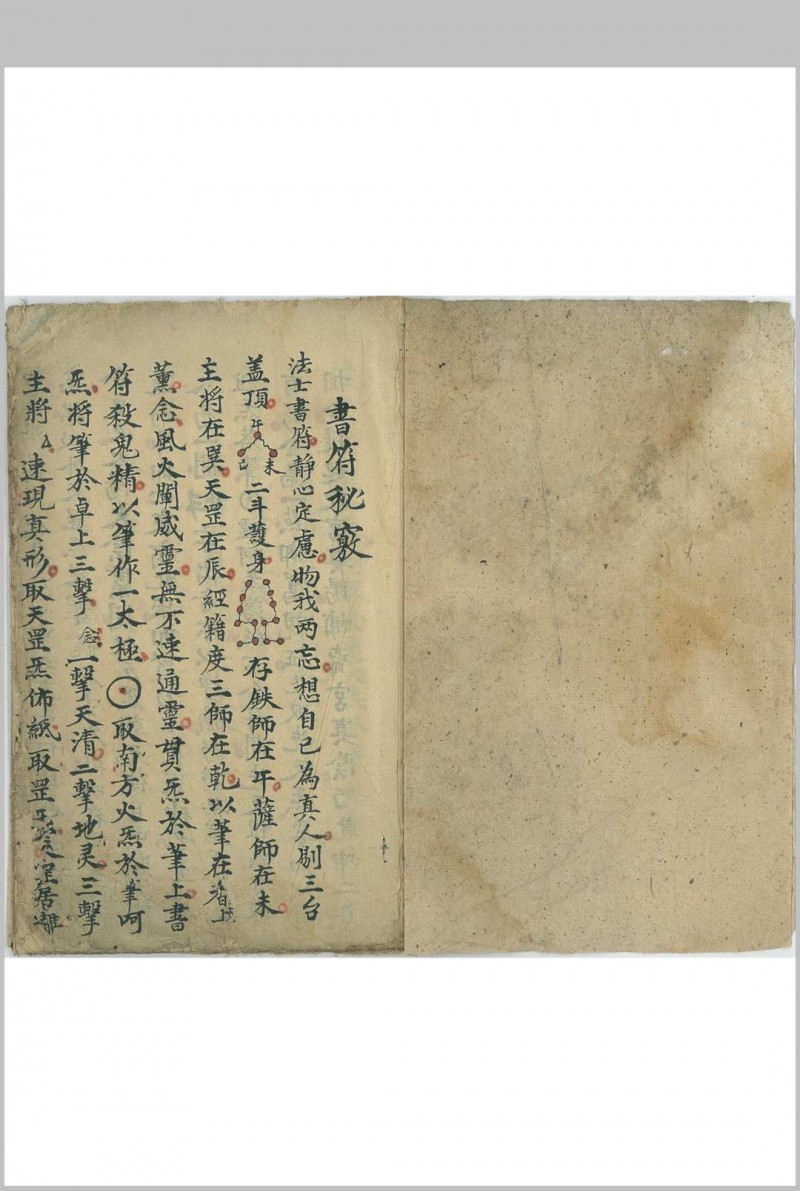 書符秘竅
法士書符靜心定慮物我両忘想自己為真人剔三台
盖頂午己未二斗護身存鉄師在午薩師在未
主將在巽天罡在辰經籍度三師在乾以筆在香上
薫念風火闡威靈無不速通靈貫炁於筆上書
符殺鬼精以筆作一太極取南方火炁於筆呵
炁將筆於卓上三擊念一擊天清二擊地灵三擊
主將速現真形取天罡炁佈紙取罡炁居離